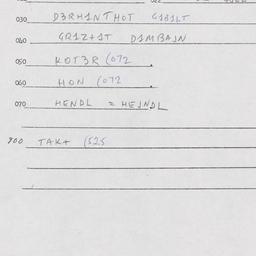 030 D3RH1NTHOT G1B1LT
040 GR1Z+1T D1MBAJN
050 KOT3R (072
060 HON (072
070 HENDL = HEJNDL
900 TAK+ (525